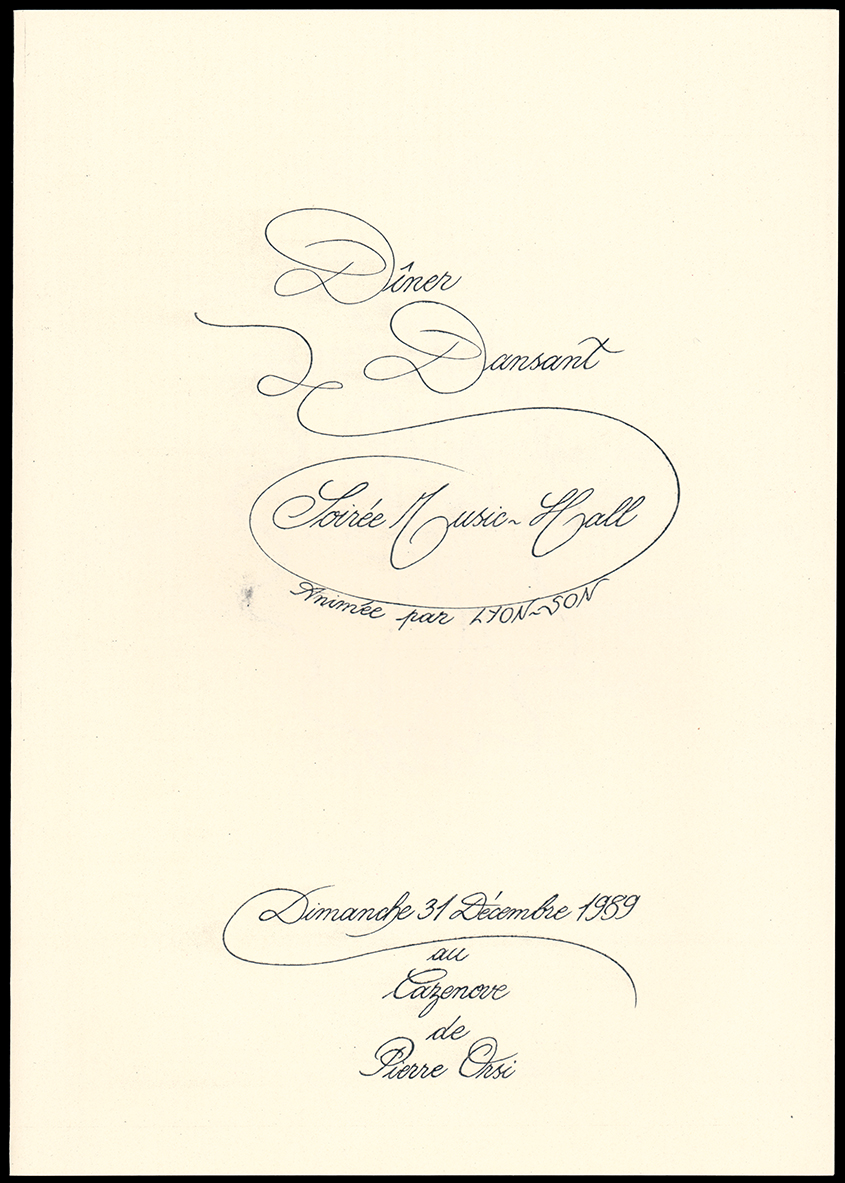 Dîner
Dansant
Soirée Music-Hall
Animée par LYON-SON
Dimanche 31 Décembre 1989
au
Cazenove
de
Pierre Orsi